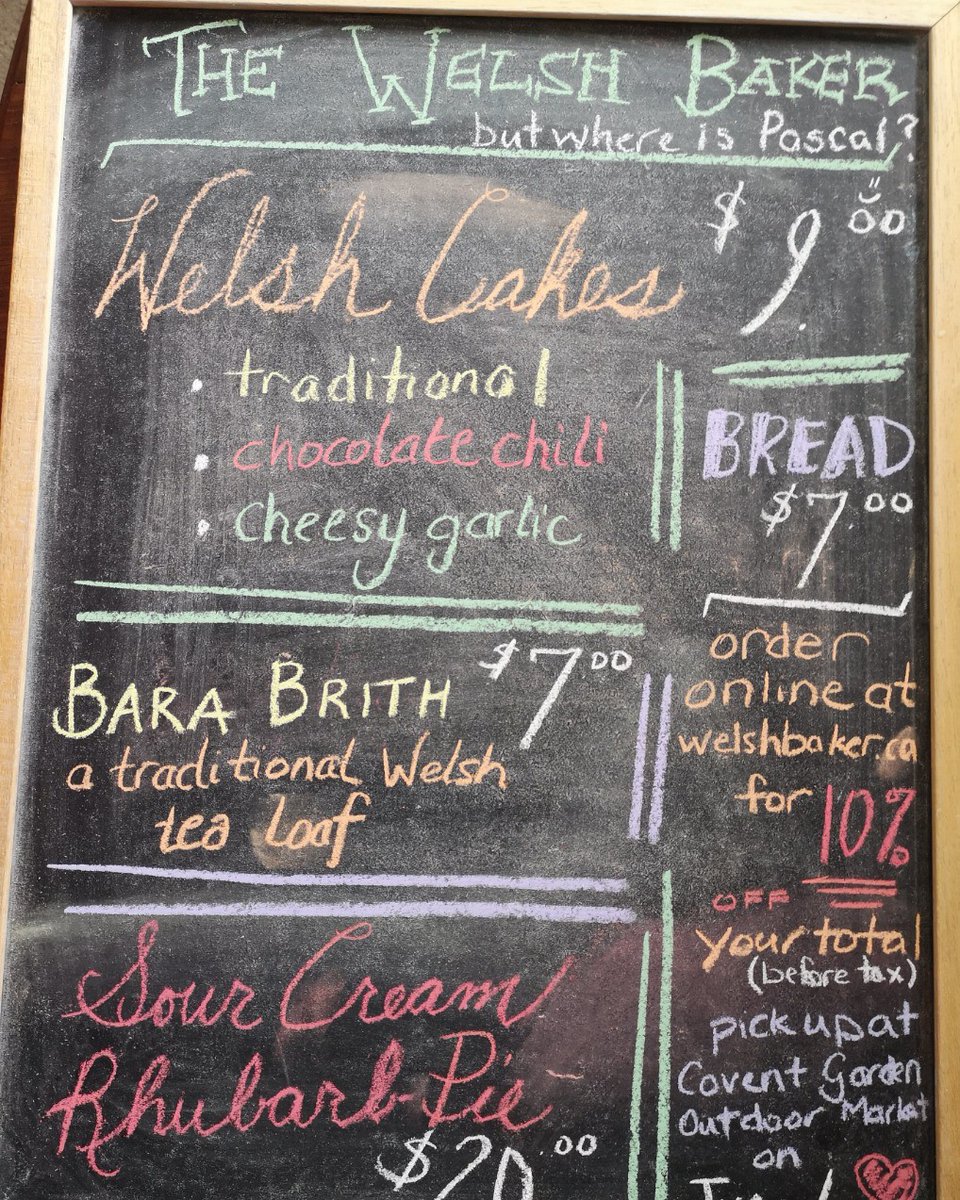 THE WELSH BAKER
but where is Pascal?
Welsh Cakes
$9.00
• traditional
• chocolate chili
• cheesy garlic
BREAD
$7.00
BARA BRITH
$7.00
a traditional Welsh
tea loaf
Sour Cream
Rhubarb Pie
$20.00
order
online at
welshbaker.ca
for 10%
OFF
your total
(before tax)
pick up at
Covent Garden
Outdoor Market
on